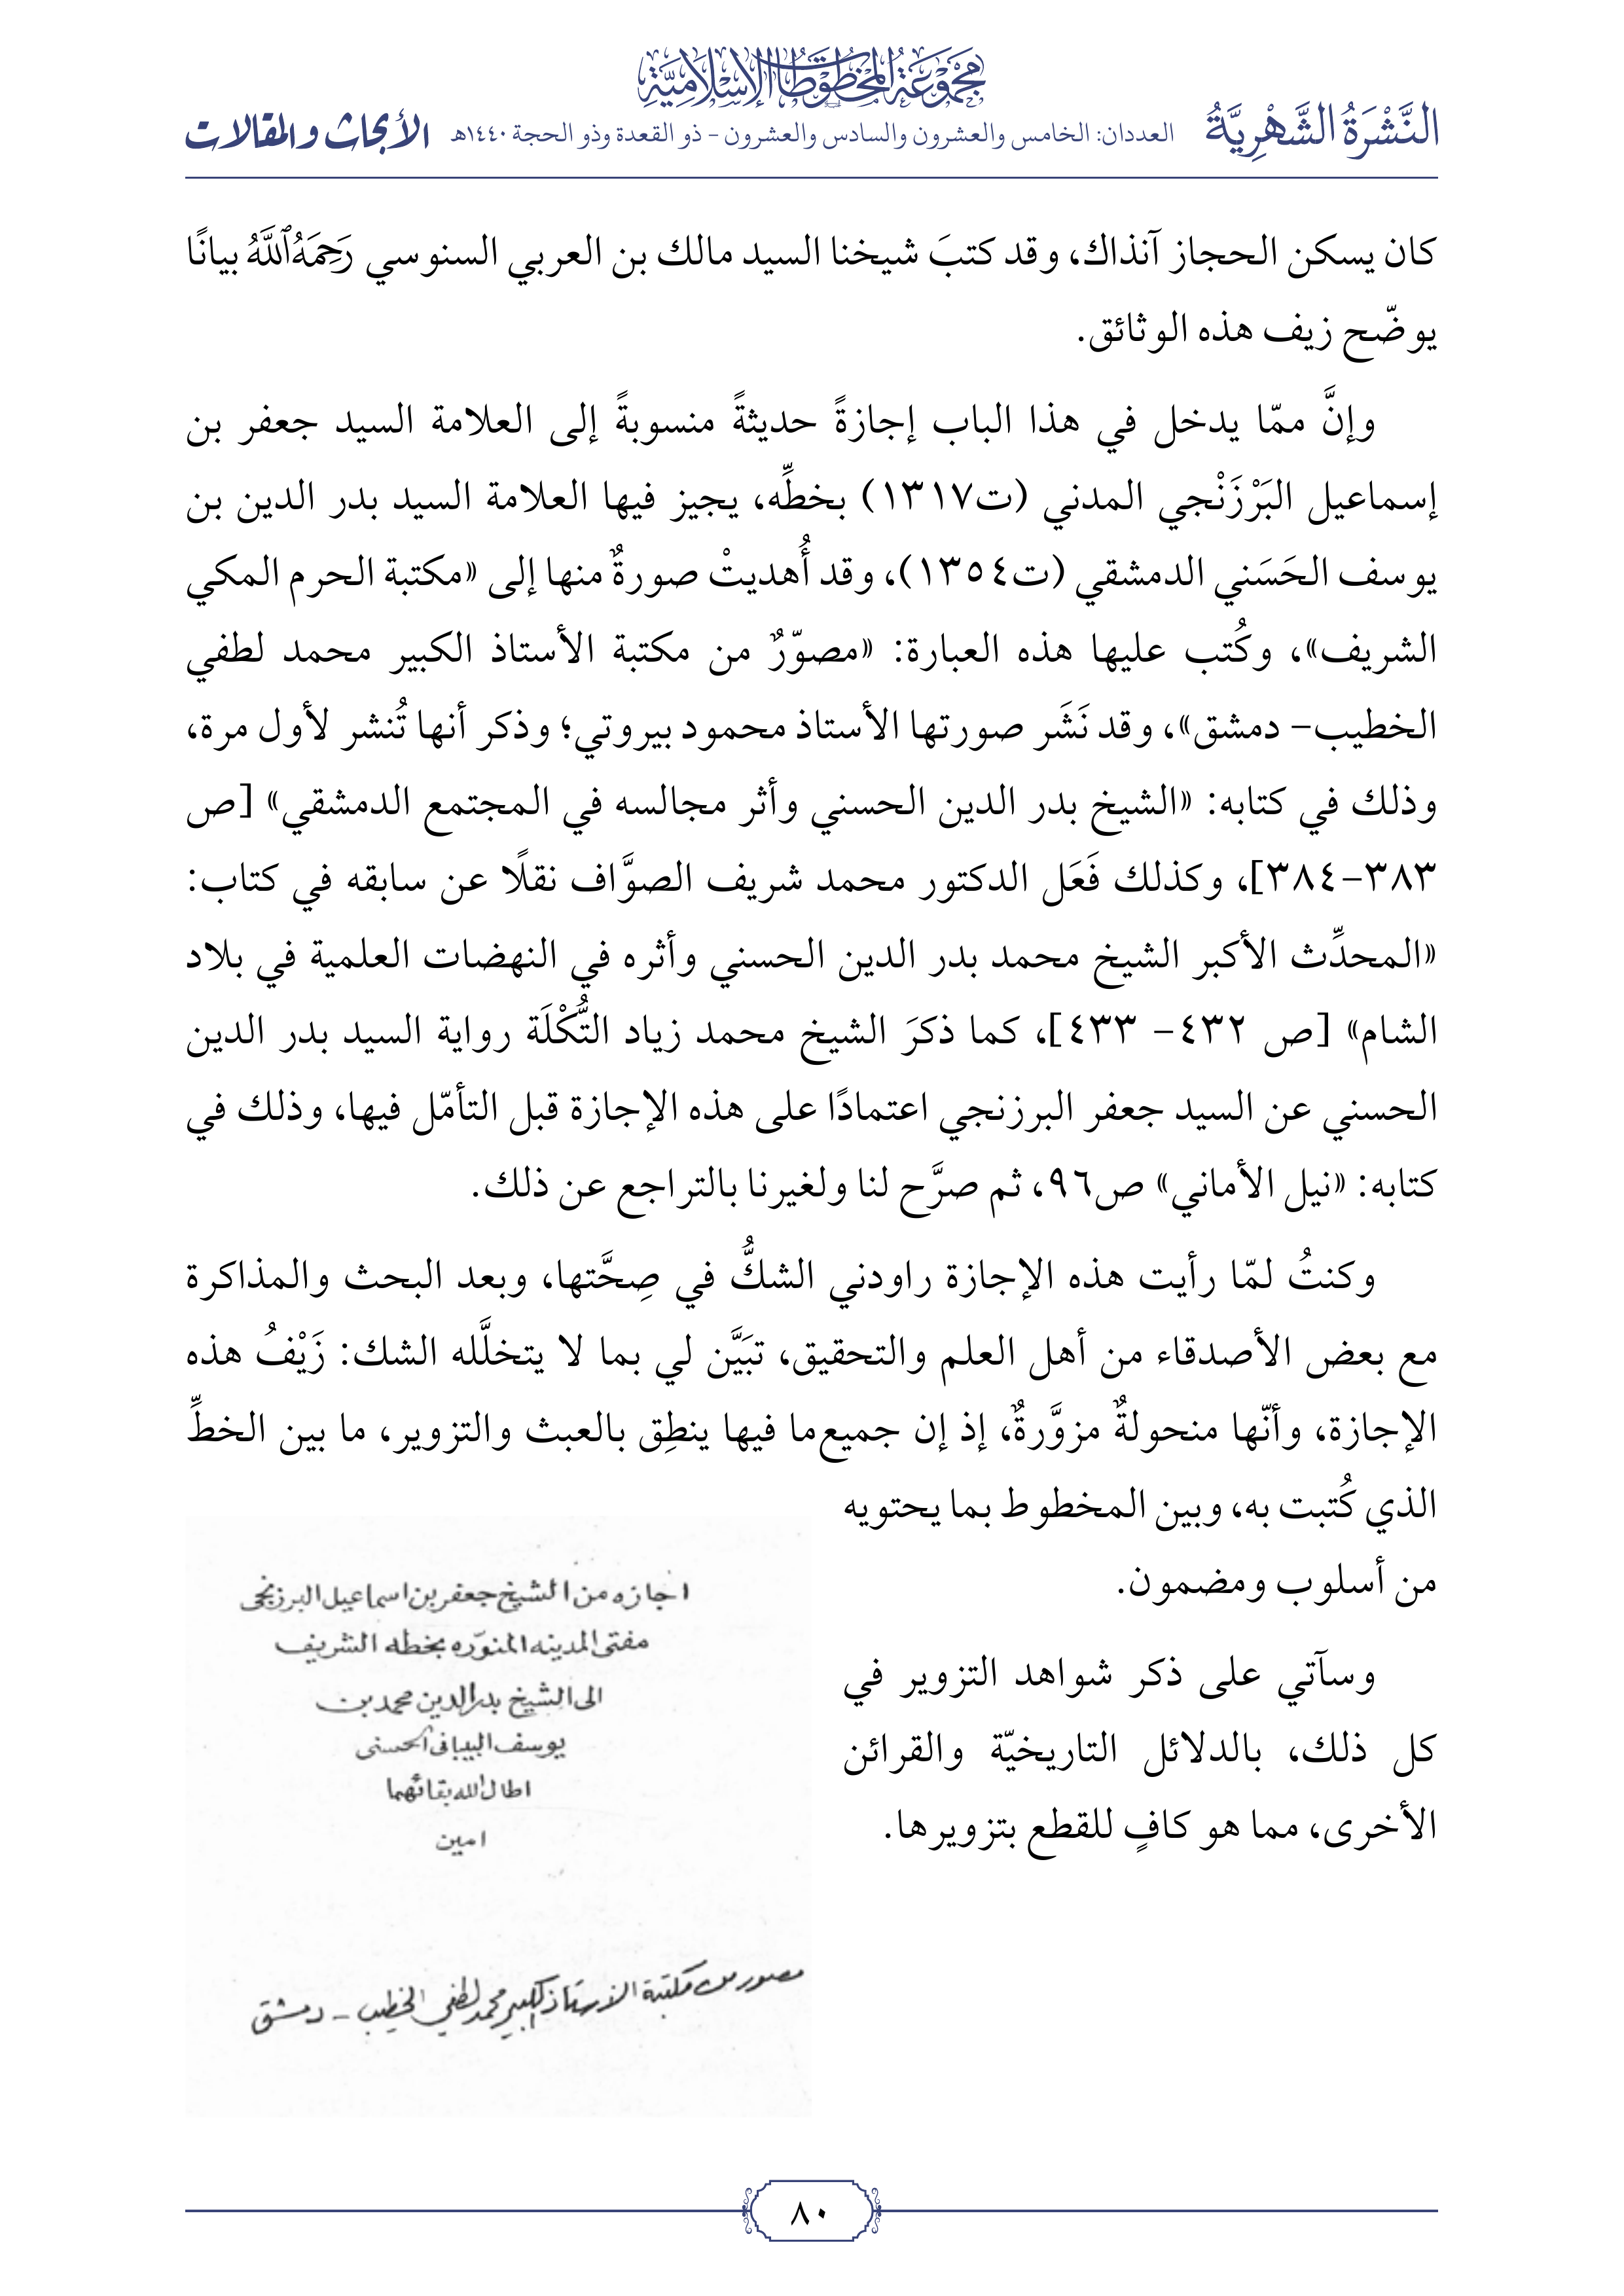 مجموعة المخطوطات الإسلامية
النَّشْرَةُ الشَّهْرِيَّةُ العددان: الخامس والعشرون والسادس والعشرون - ذو القعدة وذو الحجة ١٤٤٠هـ الأبحاث والمقالات
كان يسكن الحجاز آنذاك، وقد كتبَ شيخنا السيد مالك بن العربي السنوسي رَحِمَهُ ٱللَّهُ بيانًا
يوضّح زيف هذه الوثائق.
وإنَّ ممّا يدخل في هذا الباب إجازةً حديثةً منسوبةً إلى العلامة السيد جعفر بن
إسماعيل البَرْزَنْجي المدني (ت١٣١٧) بخطِّه، يجيز فيها العلامة السيد بدر الدين بن
يوسف الحَسَني الدمشقي (ت١٣٥٤)، وقد أُهديتْ صورةٌ منها إلى «مكتبة الحرم المكي
الشريف»، وكُتب عليها هذه العبارة: «مصوّرٌ من مكتبة الأستاذ الكبير محمد لطفي
الخطيب- دمشق»، وقد نَشَر صورتها الأستاذ محمود بيروتي؛ وذكر أنها تُنشر لأول مرة،
وذلك في كتابه: «الشيخ بدر الدين الحسني وأثر مجالسه في المجتمع الدمشقي» [ص
٣٨٣-٣٨٤]، وكذلك فَعَل الدكتور محمد شريف الصوَّاف نقلًا عن سابقه في كتاب:
«المحدِّث الأكبر الشيخ محمد بدر الدين الحسني وأثره في النهضات العلمية في بلاد
الشام» [ص ٤٣٢- ٤٣٣]، كما ذكرَ الشيخ محمد زياد التُّكْلَة رواية السيد بدر الدين
الحسني عن السيد جعفر البرزنجي اعتمادًا على هذه الإجازة قبل التأمّل فيها، وذلك في
كتابه: «نيل الأماني» ص٩٦، ثم صرَّح لنا ولغيرنا بالتراجع عن ذلك.
وكنتُ لمّا رأيت هذه الإجازة راودني الشكُّ في صِحَّتها، وبعد البحث والمذاكرة
مع بعض الأصدقاء من أهل العلم والتحقيق، تبَيَّن لي بما لا يتخلَّله الشك: زَيْفُ هذه
الإجازة، وأنّها منحولةٌ مزوَّرةٌ، إذ إن جميع ما فيها ينطِق بالعبث والتزوير، ما بين الخطِّ
الذي كُتبت به، وبين المخطوط بما يحتويه
من أسلوب ومضمون.
وسآتي على ذكر شواهد التزوير في
كل ذلك، بالدلائل التاريخيّة والقرائن
الأخرى، مما هو كافٍ للقطع بتزويرها.
اجازه من الشيخ جعفر بن اسماعيل البرزنجى
مفتى المدينه المنوّره بخطه الشريف
الى الشيخ بدر الدين محمد بن
يوسف البيبانى الحسنى
اطال الله بقائهما
امين
مصور من مكتبة الاستاذ الكبير محمد لطفي الخطيب - دمشق
٨٠